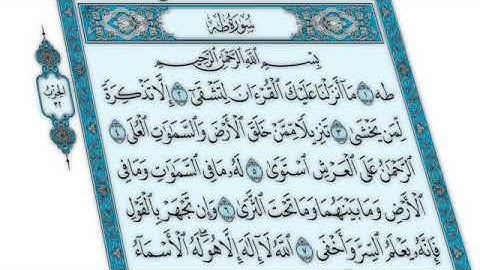 سُورَةُ طه
بِسْمِ اللَّهِ الرَّحْمَٰنِ الرَّحِيمِ
طه ١ مَا أَنزَلْنَا عَلَيْكَ الْقُرْءَانَ لِتَشْقَىٰ ٢ إِلَّا تَذْكِرَةً
لِّمَن يَخْشَىٰ ٣ تَنزِيلًا مِّمَّنْ خَلَقَ الْأَرْضَ وَالسَّمَٰوَٰتِ الْعُلَى ٤
الرَّحْمَٰنُ عَلَى الْعَرْشِ اسْتَوَىٰ ٥ لَهُ مَا فِي السَّمَٰوَٰتِ وَمَا فِي
الْأَرْضِ وَمَا بَيْنَهُمَا وَمَا تَحْتَ الثَّرَىٰ ٦ وَإِن تَجْهَرْ بِالْقَوْلِ
فَإِنَّهُ يَعْلَمُ السِّرَّ وَأَخْفَى ٧ اللَّهُ لَا إِلَٰهَ إِلَّا هُوَ لَهُ الْأَسْمَاءُ
الجزء